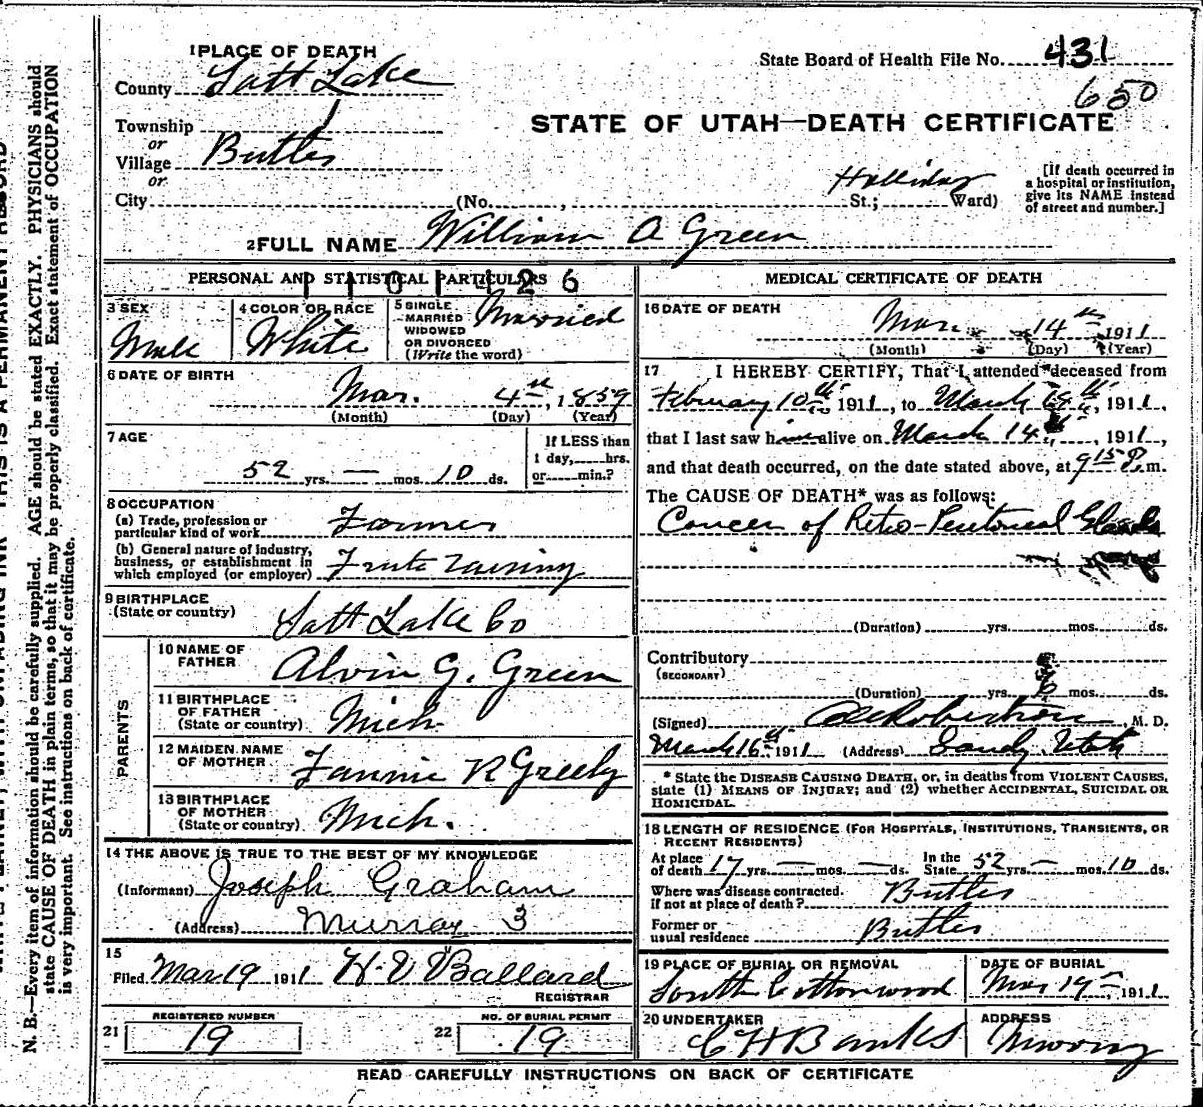 1 PLACE OF DEATH
State Board of Health File No. 431
County Salt Lake
650
STATE OF UTAH—DEATH CERTIFICATE
Township
or
Village Butler
or
City (No. , St.; Ward)
Holliday
[If death occurred in
a hospital or institution,
give its NAME instead
of street and number.]
2 FULL NAME William A Green
PERSONAL AND STATISTICAL PARTICULARS
1101426
3 SEX
Male
4 COLOR OR RACE
White
5 SINGLE
MARRIED
WIDOWED
OR DIVORCED
(Write the word)
Married
6 DATE OF BIRTH
Mar. 4th, 1859
(Month) (Day) (Year)
7 AGE
52 yrs. — mos. 10 ds.
If LESS than
1 day, hrs.
or min.?
8 OCCUPATION
(a) Trade, profession or
particular kind of work Farmer
(b) General nature of industry,
business, or establishment in
which employed (or employer) Fruit Raising
9 BIRTHPLACE
(State or country) Salt Lake Co
PARENTS
10 NAME OF
FATHER Alvin G. Green
11 BIRTHPLACE
OF FATHER
(State or country) Mich
12 MAIDEN NAME
OF MOTHER Fannie R Greely
13 BIRTHPLACE
OF MOTHER
(State or country) Mich.
14 THE ABOVE IS TRUE TO THE BEST OF MY KNOWLEDGE
(Informant) Joseph Graham
(Address) Murray 3
15
Filed Mar 19 1911 H. V Ballard
REGISTRAR
REGISTERED NUMBER
21 19
NO. OF BURIAL PERMIT
22 19
MEDICAL CERTIFICATE OF DEATH
16 DATE OF DEATH
Mar. 14th 1911
(Month) (Day) (Year)
17 I HEREBY CERTIFY, That I attended deceased from
February 10th, 1911, to March 14th, 1911,
that I last saw him alive on March 14th, 1911,
and that death occurred, on the date stated above, at 9 15 P. m.
The CAUSE OF DEATH* was as follows:
Cancer of Retro-Peritoneal Glands
(Duration) yrs. mos. ds.
Contributory
(SECONDARY)
(Duration) yrs. 6 mos. ds.
(Signed) Robertson, M. D.
March 16th 1911 (Address) Sandy, Utah
* State the DISEASE CAUSING DEATH, or, in deaths from VIOLENT CAUSES,
state (1) MEANS OF INJURY; and (2) whether ACCIDENTAL, SUICIDAL OR
HOMICIDAL.
18 LENGTH OF RESIDENCE (FOR HOSPITALS, INSTITUTIONS, TRANSIENTS, OR
RECENT RESIDENTS)
At place
of death 17 yrs. — — ds.
In the
State 52 yrs. — mos. 10 ds.
Where was disease contracted.
if not at place of death? Butler
Former or
usual residence Butler
19 PLACE OF BURIAL OR REMOVAL
South Cottonwood
DATE OF BURIAL
Mar 19th 1911
20 UNDERTAKER
C H Banks
ADDRESS
Murray
READ CAREFULLY INSTRUCTIONS ON BACK OF CERTIFICATE
N. B.—Every item of information should be carefully supplied. AGE should be stated EXACTLY. PHYSICIANS should
state CAUSE OF DEATH in plain terms, so that it may be properly classified. Exact statement of OCCUPATION
is very important. See instructions on back of certificate.